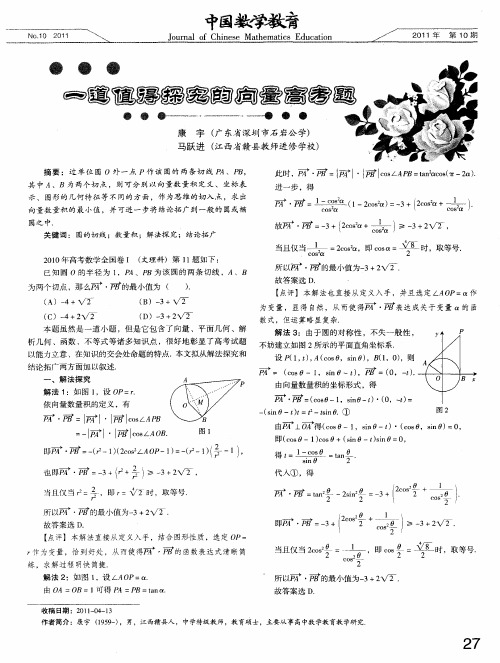 中国数学教育
No.10 2011
Journal of Chinese Mathematics Education
2011年 第10期
一道值得探究的向量高考题
康 宇 (广东省深圳市石岩公学)
马跃进 (江西省赣县教师进修学校)
摘要：过单位圆 O 外一点 P 作该圆的两条切线 PA、PB，
其中 A、B 为两个切点，则可分别以向量数量积定义、坐标表
示、图形的几何特征等不同的方面，作为思维的切入点，求出
向量数量积的最小值，并可进一步将结论拓广到一般的圆或椭
圆之中.
关键词：圆的切线；数量积；解法探究；结论拓广
2010 年高考数学全国卷 I (文理科) 第 11 题如下：
已知圆 O 的半径为 1，PA、PB 为该圆的两条切线，A、B
为两个切点，那么PA·PB的最小值为 ( ).
(A) -4+√2 (B) -3+√2
(C) -4+2√2 (D) -3+2√2
本题虽然是一道小题，但是它包含了向量、平面几何、解
析几何、函数、不等式等诸多知识点，很好地彰显了高考试题
以能力立意、在知识的交会处命题的特点. 本文拟从解法探究和
结论拓广两方面加以叙述.
一、解法探究
解法 1：如图 1，设 OP=r.
依向量数量积的定义，有
PA·PB=|PA|·|PB|cos∠APB
=-|PA|·|PB|cos∠AOB.
A
P
O
M
B
图 1
即PA·PB=-(r²-1)(2cos²∠AOP-1)=-(r²-1)(2/r²-1)，
也即PA·PB=-3+(r²+2/r²)≥-3+2√2，
当且仅当 r²=2/r²，即 r=∜2 时，取等号.
所以PA·PB的最小值为-3+2√2.
故答案选 D.
【点评】本解法直接从定义入手，结合图形性质，选定 OP=
r 作为变量，恰到好处，从而使得PA·PB的函数表达式清晰简
练，求解过程明快简捷.
解法 2：如图 1，设∠AOP=α.
由 OA=OB=1 可得 PA=PB=tanα
此时，PA·PB=|PA|·|PB|cos∠APB=tan²αcos(π-2α).
进一步，得
PA·PB=(1-cos²α)/cos²α(1-2cos²α)=-3+(2cos²α+1/cos²α).
故PA·PB=-3+(2cos²α+1/cos²α)≥-3+2√2，
当且仅当1/cos²α=2cos²α，即 cosα=∜8/2 时，取等号.
所以PA·PB的最小值为-3+2√2.
故答案选 D.
【点评】本解法也直接从定义入手，并且选定∠AOP=α 作
为变量，显得自然，从而使得PA·PB表达成关于变量 α 的函
数式，但运算略显复杂.
解法 3：由于圆的对称性，不失一般性，
不妨建立如图 2 所示的平面直角坐标系.
设 P(1, t), A(cosθ, sinθ), B(1, 0)，则
PA=(cosθ-1, sinθ-t), PB=(0, -t).
由向量数量积的坐标形式，得
PA·PB=(cosθ-1, sinθ-t)·(0, -t)=
-(sinθ-t)t=t²-tsinθ. ①
y
P
A
O
B
x
图 2
由PA⊥OA得(cosθ-1, sinθ-t)·(cosθ, sinθ)=0，
即(cosθ-1)cosθ+(sinθ-t)sinθ=0，
得 t=(1-cosθ)/sinθ=tan θ/2.
代入①，得
PA·PB=tan²θ/2-2sin²θ/2=-3+(2cos²θ/2+1/cos²θ/2).
即PA·PB=-3+(2cos²θ/2+1/cos²θ/2)≥-3+2√2.
当且仅当 2cos²θ/2=1/cos²θ/2，即 cos θ/2=∜8/2 时，取等号.
所以PA·PB的最小值为-3+2√2.
故答案选 D.
收稿日期：2011-04-13
作者简介：康宇 (1959-)，男，江西赣县人，中学特级教师，教育硕士，主要从事高中数学教育教学研究.
27